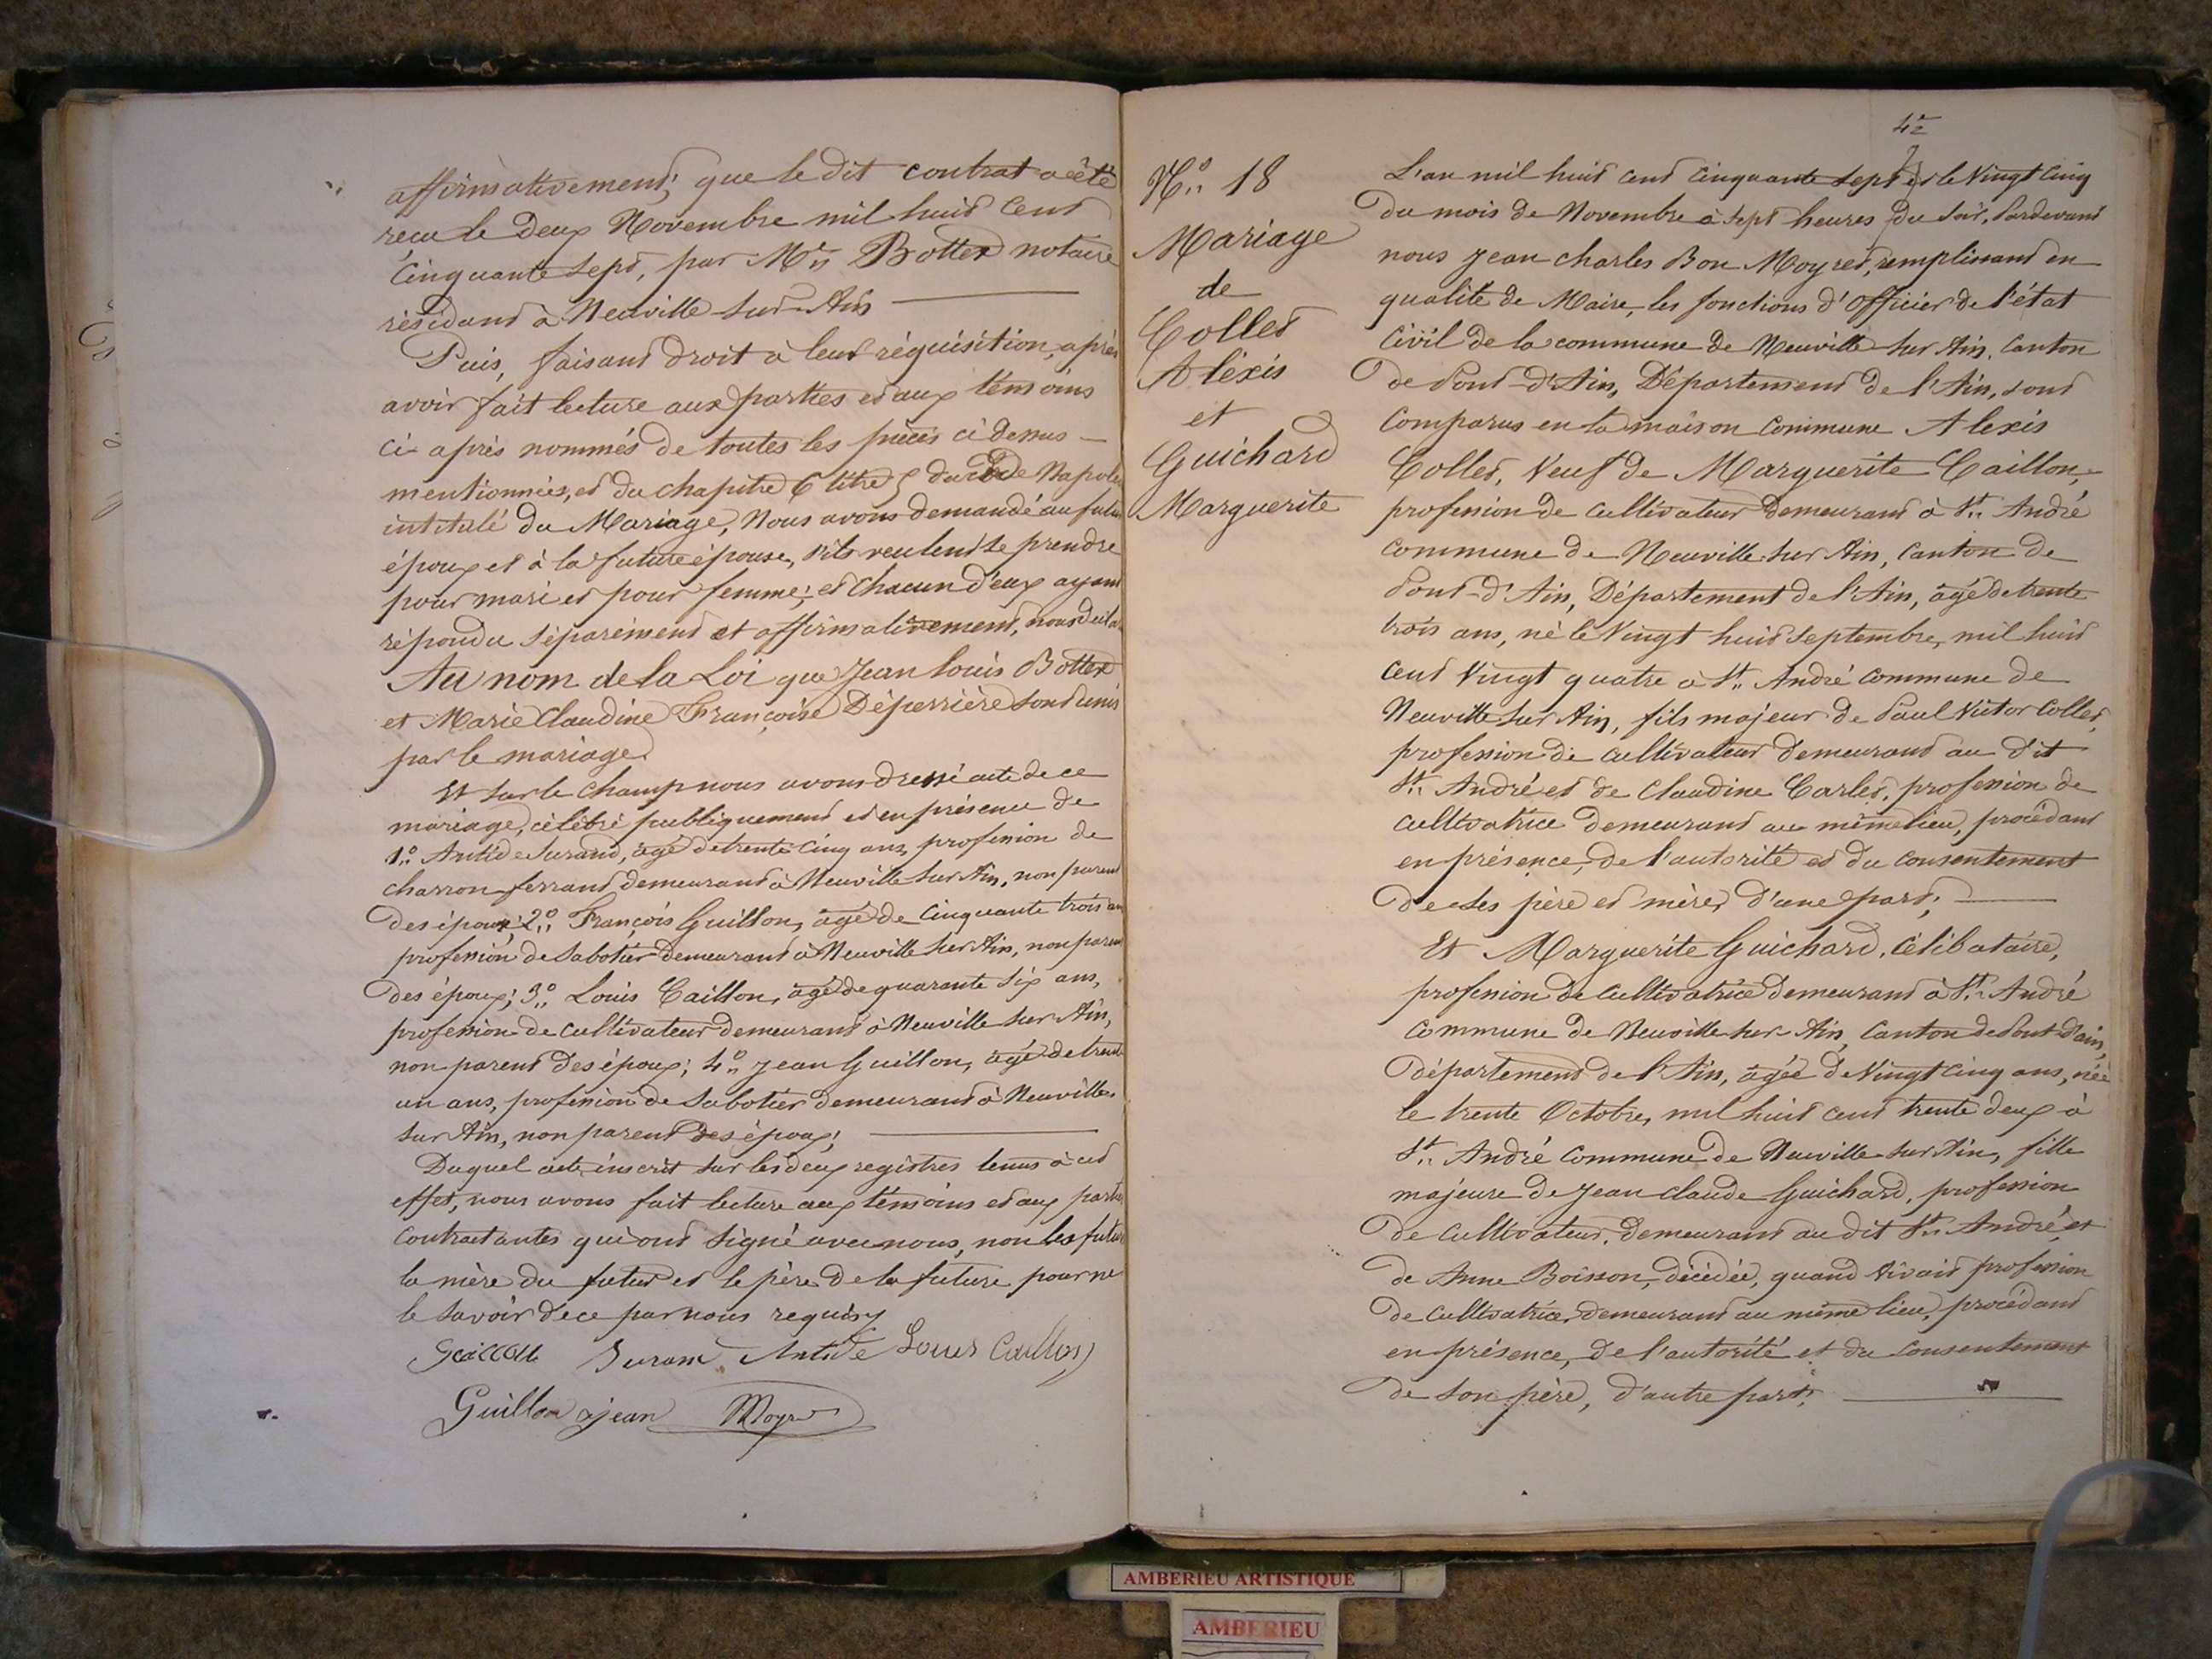 affirmativement; que le dit contrat a été
reçu le deux Novembre mil huit cent
Cinquante sept, par Me Bottex notaire
résidant à Neuville sur Ain
Puis, faisant droit à leur réquisition, après
avoir fait lecture aux parties et aux témoins
ci-après nommés de toutes les pièces ci dessus
mentionnées, et du chapitre 6 titre 5 du Code Napoléon
intitulé du Mariage, Nous avons demandé au futur
époux et à la future épouse, s'ils veulent se prendre
pour mari et pour femme; et chacun d'eux ayant
répondu séparément et affirmativement, nous
Au nom de la Loi que Jean Louis Bottex
et Marie Claudine Françoise Déperrière sont unis
par le mariage.
Et sur le champ nous avons dressé acte de ce
mariage, célébré publiquement et en présence de
1º Antide Jurand, âgé de trente cinq ans, profession de
charron ferrand demeurant à Neuville sur Ain, non parent
des époux; 2º François Guillon, âgé de Cinquante trois ans
profession de sabotier demeurant à Neuville sur Ain, non parent
des époux; 3º Louis Caillon, âgé de quarante six ans,
profession de cultivateur demeurant à Neuville sur Ain,
non parent des époux; 4º Jean Guillon, âgé de trente
un ans, profession de Sabotier demeurant à Neuville
sur Ain, non parent des époux;
Duquel acte inscrit sur les deux registres tenus à cet
effet, nous avons fait lecture aux témoins et aux parties
Contractantes qui ont signé avec nous, non les futurs
la mère du futur et le père de la future pour ne
le savoir de ce par nous requis
Jurand Antide Louis Caillon
Guillon jean Moyret
42
Nº 18
Mariage
de
Collet
Alexis
et
Guichard
Marguerite
L'an mil huit cent cinquante sept et le Vingt Cinq
du mois de Novembre à sept heures du soir, Pardevant
nous Jean Charles Bon Moyret, remplissant en
qualité de Maire, les fonctions d'officier de l'état
Civil de la commune de Neuville sur Ain, Canton
de Pont-d'Ain, Département de l'Ain, sont
Comparus en la maison Commune Alexis
Collet, Veuf de Marguerite Caillon,
profession de cultivateur demeurant à St André
commune de Neuville sur Ain, Canton de
Pont-d'Ain, Département de l'Ain, âgé de trente
trois ans, né le Vingt huit septembre, mil huit
cent Vingt quatre à St André commune de
Neuville sur Ain, fils majeur de Paul Victor Collet,
profession de cultivateur demeurant au dit
St André et de Claudine Carlet, profession de
cultivatrice demeurant au même lieu, procédant
en présence, de l'autorité et du consentement
de ses père et mère, d'une part;
Et Marguerite Guichard, Célibataire,
profession de cultivatrice demeurant à St André
Commune de Neuville sur Ain, Canton de Pont d'ain,
département de l'Ain, âgée de Vingt Cinq ans, née
le trente Octobre, mil huit cent trente deux à
St André Commune de Neuville sur Ain, fille
majeure de Jean Claude Guichard, profession
de cultivateur, demeurant au dit St André, et
de Anne Boisson, décédée, quand vivait profession
de cultivatrice, demeurant au même lieu, procédant
en présence, de l'autorité et du Consentement
de son père, d'autre part;
AMBERIEU ARTISTIQUE
AMBERIEU